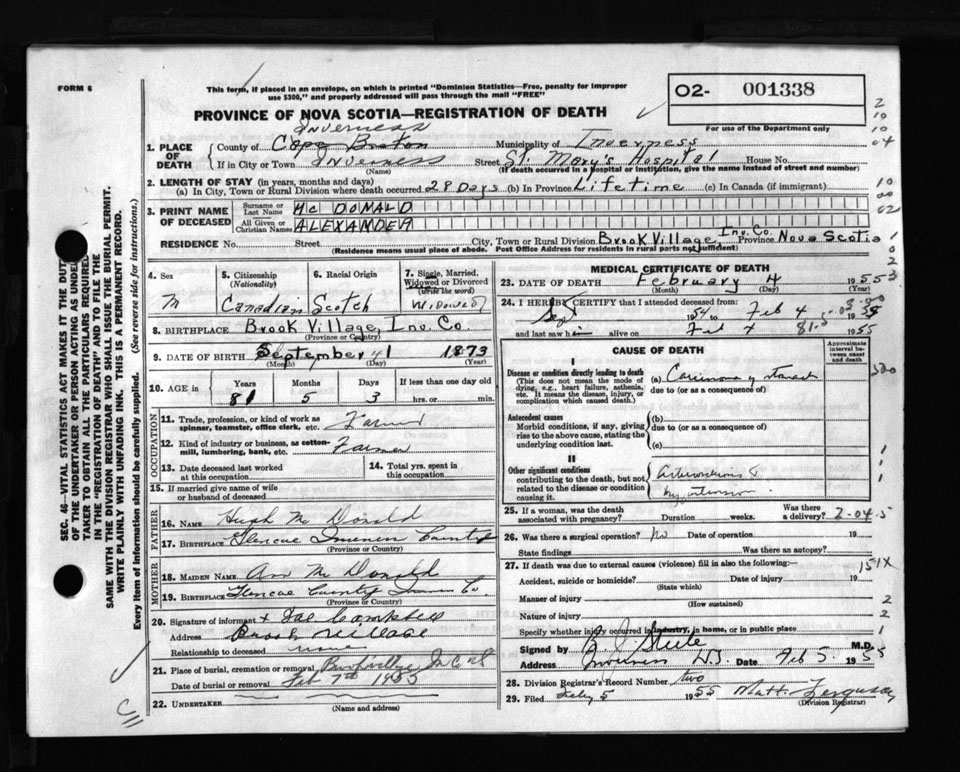 FORM 6
This form, if placed in an envelope, on which is printed "Dominion Statistics—Free, penalty for improper
use $300," and properly addressed will pass through the mail "FREE"
O2- 001338
For use of the Department only
PROVINCE OF NOVA SCOTIA—REGISTRATION OF DEATH
Inverness
1. PLACE OF DEATH County of Cape Breton Municipality of Inverness
If in City or Town Inverness Street St. Mary's Hospital House No.
(Name) (If death occurred in a hospital or institution, give the name instead of street and number)
2. LENGTH OF STAY (in years, months and days)
(a) In City, Town or Rural Division where death occurred 28 Days (b) In Province Lifetime (c) In Canada (if immigrant)
3. PRINT NAME OF DECEASED Surname or Last Name Mc DONALD
All Given or Christian Names ALEXANDER
RESIDENCE No. Street City, Town or Rural Division Brook Village, Inv. Co. Province Nova Scotia
(Residence means usual place of abode. Post Office Address for residents in rural parts not sufficient)
4. Sex M
5. Citizenship (Nationality) Canadian
6. Racial Origin Scotch
7. Single, Married, Widowed or Divorced (Write the word) Widowed
8. BIRTHPLACE Brook Village, Inv. Co.
(Province or Country)
9. DATE OF BIRTH September 1 1873
(Month) (Day) (Year)
10. AGE in Years Months Days If less than one day old
81 5 3 hrs. or min.
OCCUPATION
11. Trade, profession or kind of work as spinner, teamster, office clerk, etc. Farmer
12. Kind of industry or business, as cotton-mill, lumbering, bank, etc. Farmer
13. Date deceased last worked at this occupation
14. Total yrs. spent in this occupation
15. If married give name of wife or husband of deceased
FATHER
16. NAME Hugh Mc Donald
17. BIRTHPLACE Glencoe Inverness County
(Province or Country)
MOTHER
18. MAIDEN NAME Ann Mc Donald
19. BIRTHPLACE Glencoe County Inverness Co.
(Province or Country)
20. Signature of informant x Joe Campbell
Address Brook Village
Relationship to deceased none
21. Place of burial, cremation or removal
Date of burial or removal Feb 7th 1955
22. UNDERTAKER
(Name and address)
MEDICAL CERTIFICATE OF DEATH
23. DATE OF DEATH February 4 1955
(Month) (Day) (Year)
24. I HEREBY CERTIFY that I attended deceased from:
Sept 1954 to Feb 4 1955
and last saw him alive on Feb 4 1955
CAUSE OF DEATH
Approximate interval between onset and death
I
Disease or condition directly leading to death (a) Carcinoma of stomach
(This does not mean the mode of dying, e.g., heart failure, asthenia, etc. It means the disease, injury, or complication which caused death.)
due to (or as a consequence of)
Antecedent causes (b)
Morbid conditions, if any, giving rise to the above cause, stating the underlying condition last.
due to (or as a consequence of)
(c)
II
Other significant conditions contributing to the death, but not related to the disease or condition causing it.
Arteriosclerosis &
hypertension
25. If a woman, was the death associated with pregnancy? Duration weeks. Was there a delivery?
2-04-5
26. Was there a surgical operation? No Date of operation 19
State findings Was there an autopsy?
27. If death was due to external causes (violence) fill in also the following:—
151X
Accident, suicide or homicide? Date of injury 19
(State which)
Manner of injury
(How sustained)
Nature of injury
Specify whether injury occurred in industry, in home, or in public place
Signed by Steele M.D.
Address Inverness N.S. Date Feb 5 1955
28. Division Registrar's Record Number two
29. Filed Feby 5 1955 Matt. Ferguson
(Division Registrar)
SEC. 46—VITAL STATISTICS ACT MAKES IT THE DUTY
OF THE UNDERTAKER OR PERSON ACTING AS UNDER
TAKER TO OBTAIN ALL THE PARTICULARS REQUIRED
IN THE "REGISTRATION OF DEATH" AND TO FILE THE
SAME WITH THE DIVISION REGISTRAR WHO SHALL ISSUE THE BURIAL PERMIT.
WRITE PLAINLY WITH UNFADING INK. THIS IS A PERMANENT RECORD.
Every item of information should be carefully supplied. (See reverse side for instructions.)